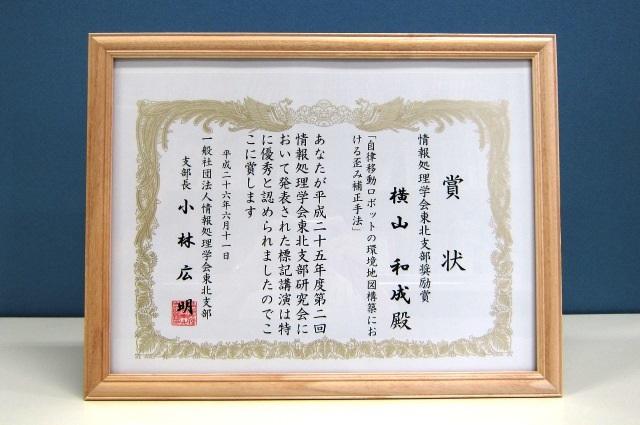 賞状
情報処理学会東北支部奨励賞
横山和成殿
「自律移動ロボットの環境地図構築にお
ける歪み補正手法」
あなたが平成二十五年度第二回
情報処理学会東北支部研究会に
おいて発表された標記講演は特
に優秀と認められましたのでこ
こに賞します
平成二十六年六月十一日
一般社団法人情報処理学会東北支部
支部長 小林広明